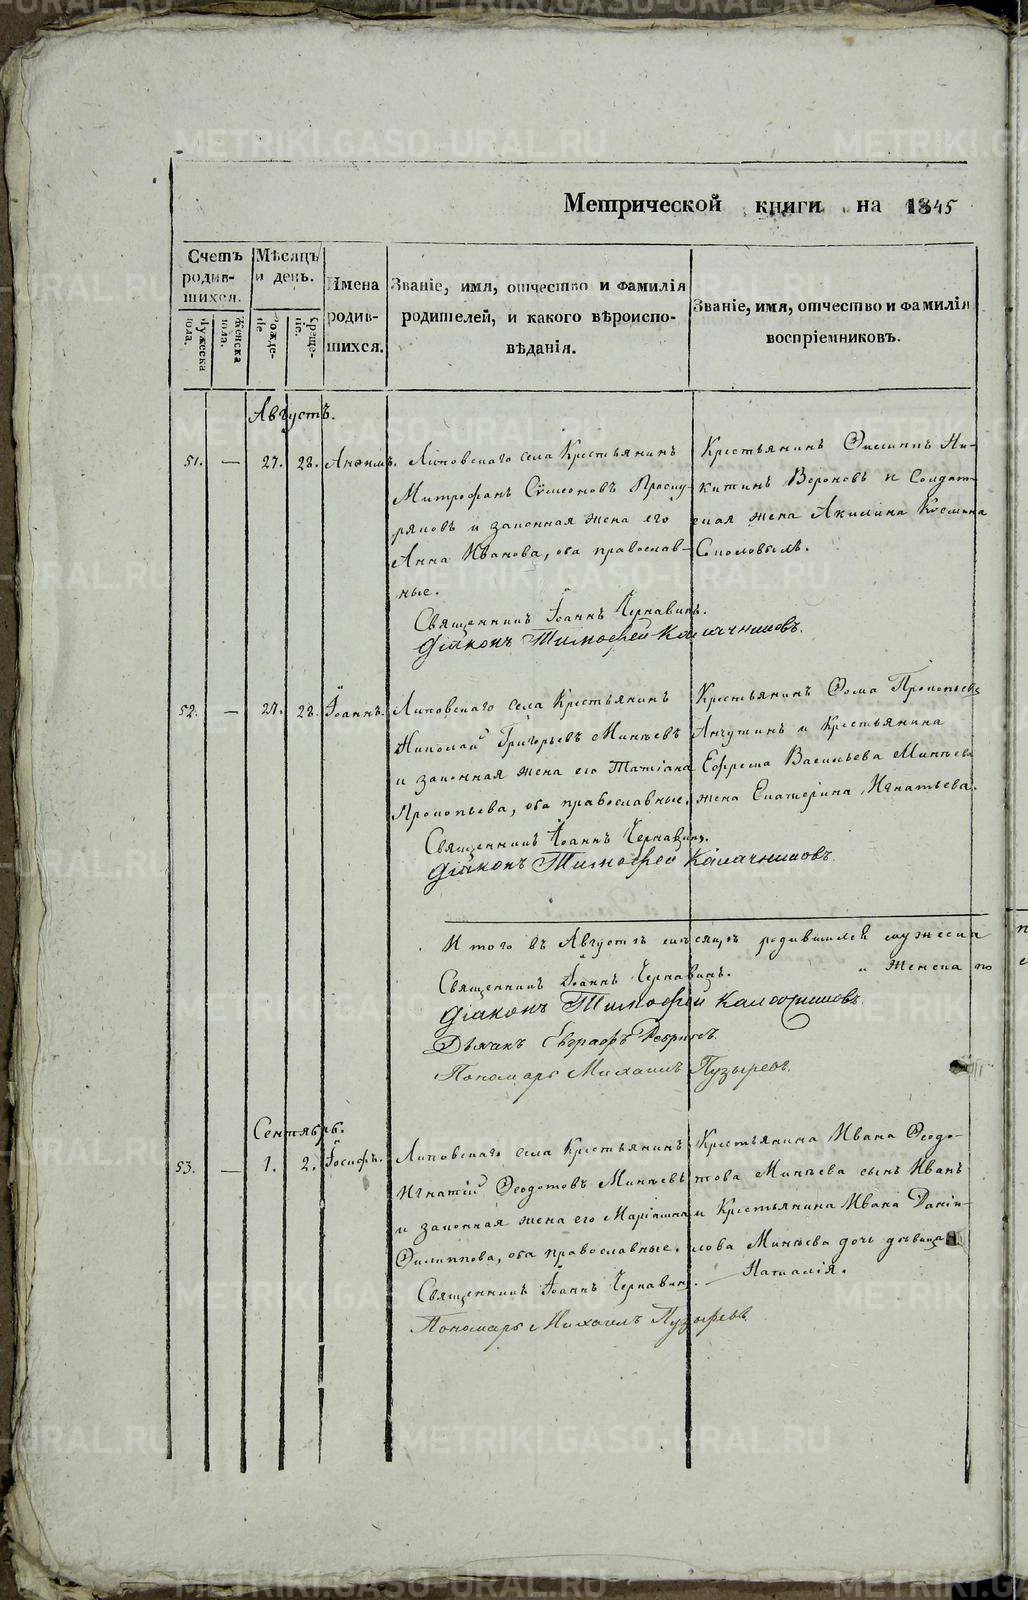 Метрической книги на 1845
Счетъ родив-шихся.
Мѣсяцъ и день.
Имена родив-шихся.
Званіе, имя, отчество и фамилія родителей, и какого вѣроиспо-вѣданія.
Званіе, имя, отчество и фамилія воспріемниковъ.
Мужеска пола.
Женска пола.
Рожде-ніе
Креще-ніе.
Августъ.
51. — 27. 28. Анѳимъ. Липовскаго села Крестьянинъ
Митрофанъ Сѵмеоновъ Проску-
ряковъ и законная жена его
Анна Иванова, оба православ-
ные.
Крестьянинъ Филиппъ Ни-
китинъ Вороновъ и Солдат-
ская жена Акилина Космина
Соколовыхъ.
Священникъ Іоаннъ Чернавинъ.
Діаконъ Тимофей Калачниковъ.
52. — 27. 28. Іоаннъ. Липовскаго села Крестьянинъ
Николай Григорьевъ Минѣевъ
и законная жена его Татіана
Прокопьева, оба православные.
Крестьянинъ Ѳома Прокопьевъ
Анчутинъ и Крестьянина
Ефрема Васильева Минѣева
жена Екатерина Игнатьева.
Священникъ Іоаннъ Чернавинъ.
Діаконъ Тимофей Калачниковъ
Итого въ Августѣ мѣсяцѣ родившихся мужеска
„ женска по
Священникъ Іоаннъ Чернавинъ.
Діаконъ Тимофей Калачниковъ
Дьячекъ
Пономарь Михаилъ Пузыревъ.
Сентябрь.
53. — 1. 2. Іосифъ. Липовскаго села Крестьянинъ
Игнатій Ѳеодотовъ Минѣевъ
и законная жена его Маріамна
Филиппова, оба православные.
Крестьянина Ивана Ѳеодо-
това Минѣева сынъ Иванъ
и Крестьянина Ивана Даніи-
лова Минѣева дочь дѣвица
Наталія.
Священникъ Іоаннъ Чернавинъ.
Пономарь Михаилъ Пузыревъ
METRIKI.GASO-URAL.RU